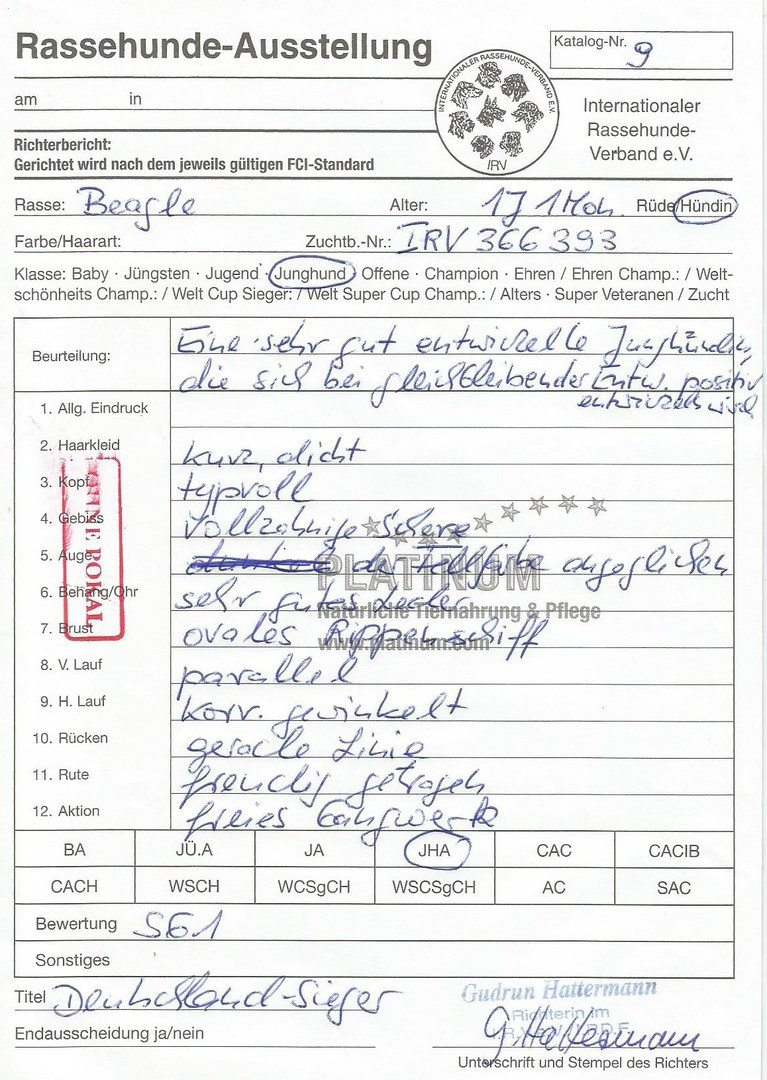 Rassehunde-Ausstellung
Katalog-Nr. 9
INTERNATIONALER RASSEHUNDE-VERBAND E.V.
IRV
am in
Internationaler
Rassehunde-
Verband e.V.
Richterbericht:
Gerichtet wird nach dem jeweils gültigen FCI-Standard
Rasse: Beagle Alter: 1J 1Mon. Rüde/Hündin
Farbe/Haarart: Zuchtb.-Nr.: IRV 366393
Klasse: Baby · Jüngsten · Jugend · Junghund · Offene · Champion · Ehren / Ehren Champ.: / Welt-
schönheits Champ.: / Welt Cup Sieger: / Welt Super Cup Champ.: / Alters · Super Veteranen / Zucht
Beurteilung: Eine sehr gut entwickelte Junghündin,
die sich bei gleichbleibender Entw. positiv
entwickeln wird
1. Allg. Eindruck
2. Haarkleid kurz, dicht
3. Kopf typvoll
4. Gebiss vollzahnige Schere
5. Auge der Fellfarbe angeglichen
6. Behang/Ohr sehr gutes Leder
7. Brust ovales Rippenschiff
8. V. Lauf parallel
9. H. Lauf korr. gewinkelt
10. Rücken gerade Linie
11. Rute freudig getragen
12. Aktion freies Gangwerk
OHNE POKAL
PLATINUM
Natürliche Tiernahrung & Pflege
www.platinum.com
BA JÜ.A JA JHA CAC CACIB
CACH WSCH WCSgCH WSCSgCH AC SAC
Bewertung SG1
Sonstiges
Titel Deutschland-Sieger
Gudrun Hattermann
Richterin im
Endausscheidung ja/nein
G. Hattermann
Unterschrift und Stempel des Richters